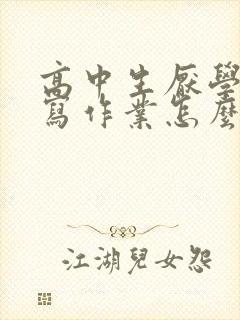 高中生厭學
寫作業怎麼
江湖兒女怨